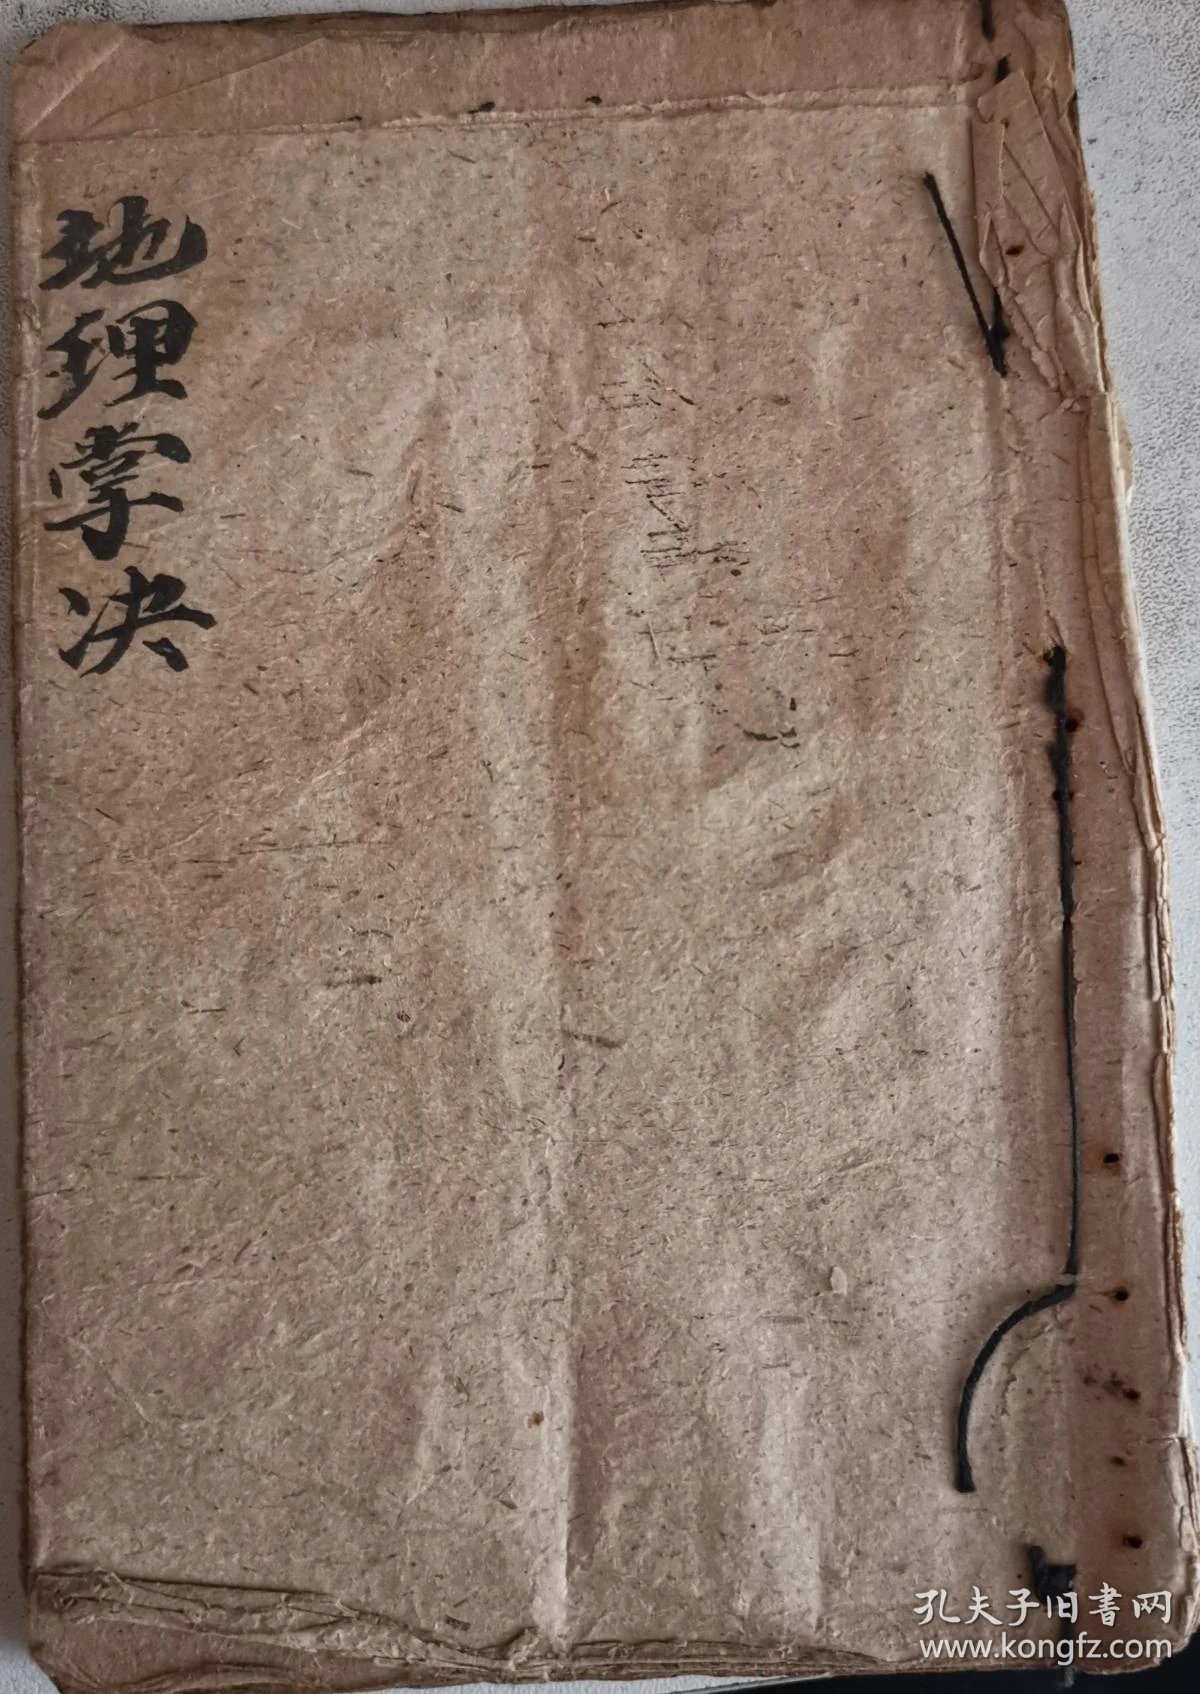 地理掌决
孔夫子旧書网
www.kongfz.com